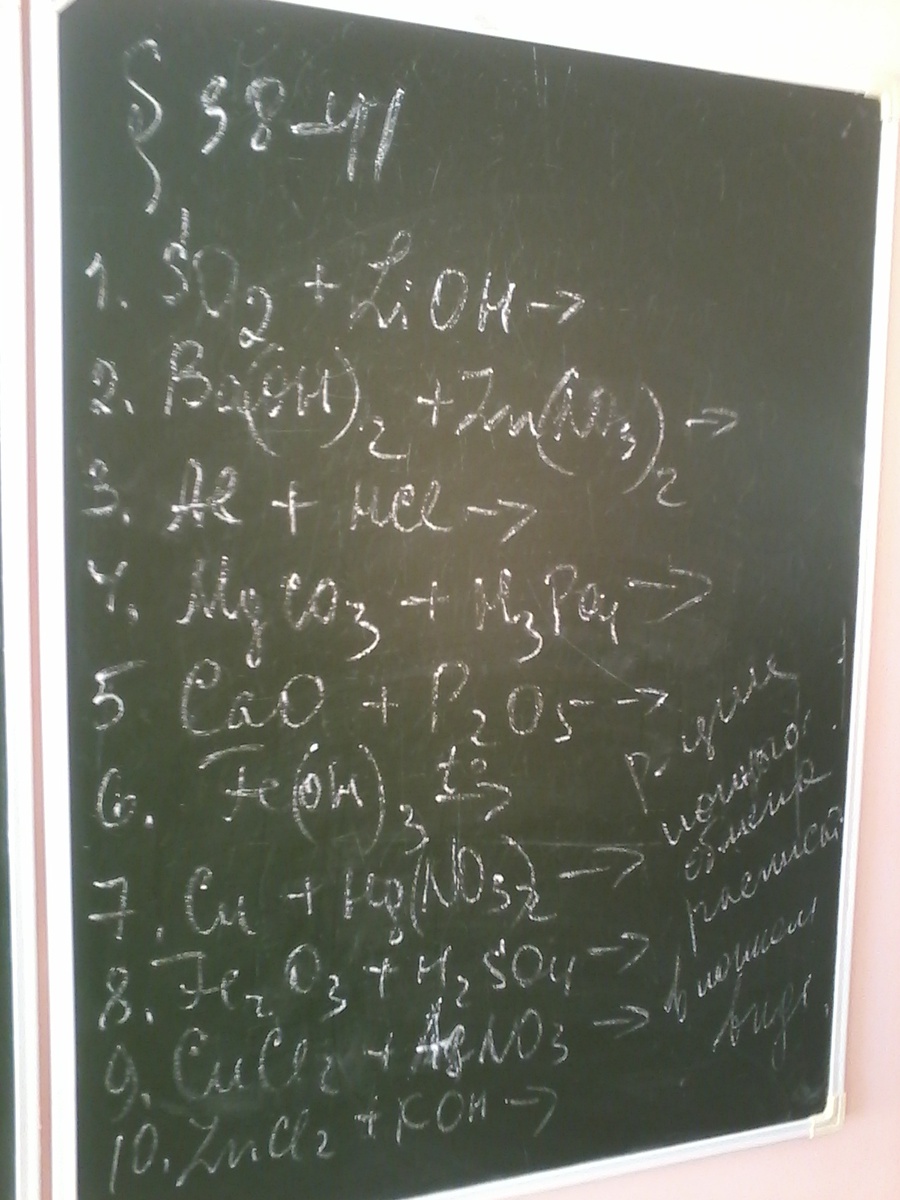 § 38-41
1. SO2 + LiOH →
2. Ba(OH)2 + Zn(NO3)2 →
3. Al + HCl →
4. MgCO3 + H3PO4 →
5 CaO + P2O5 →
6. Fe(OH)3 t° →
7. Cu + Hg(NO3)2 →
8. Fe2O3 + H2SO4 →
9. CuCl2 + AgNO3 →
10. ZnCl2 + KOH →
Р-ции
ионного
обмена
расписать
в ионном
виде.